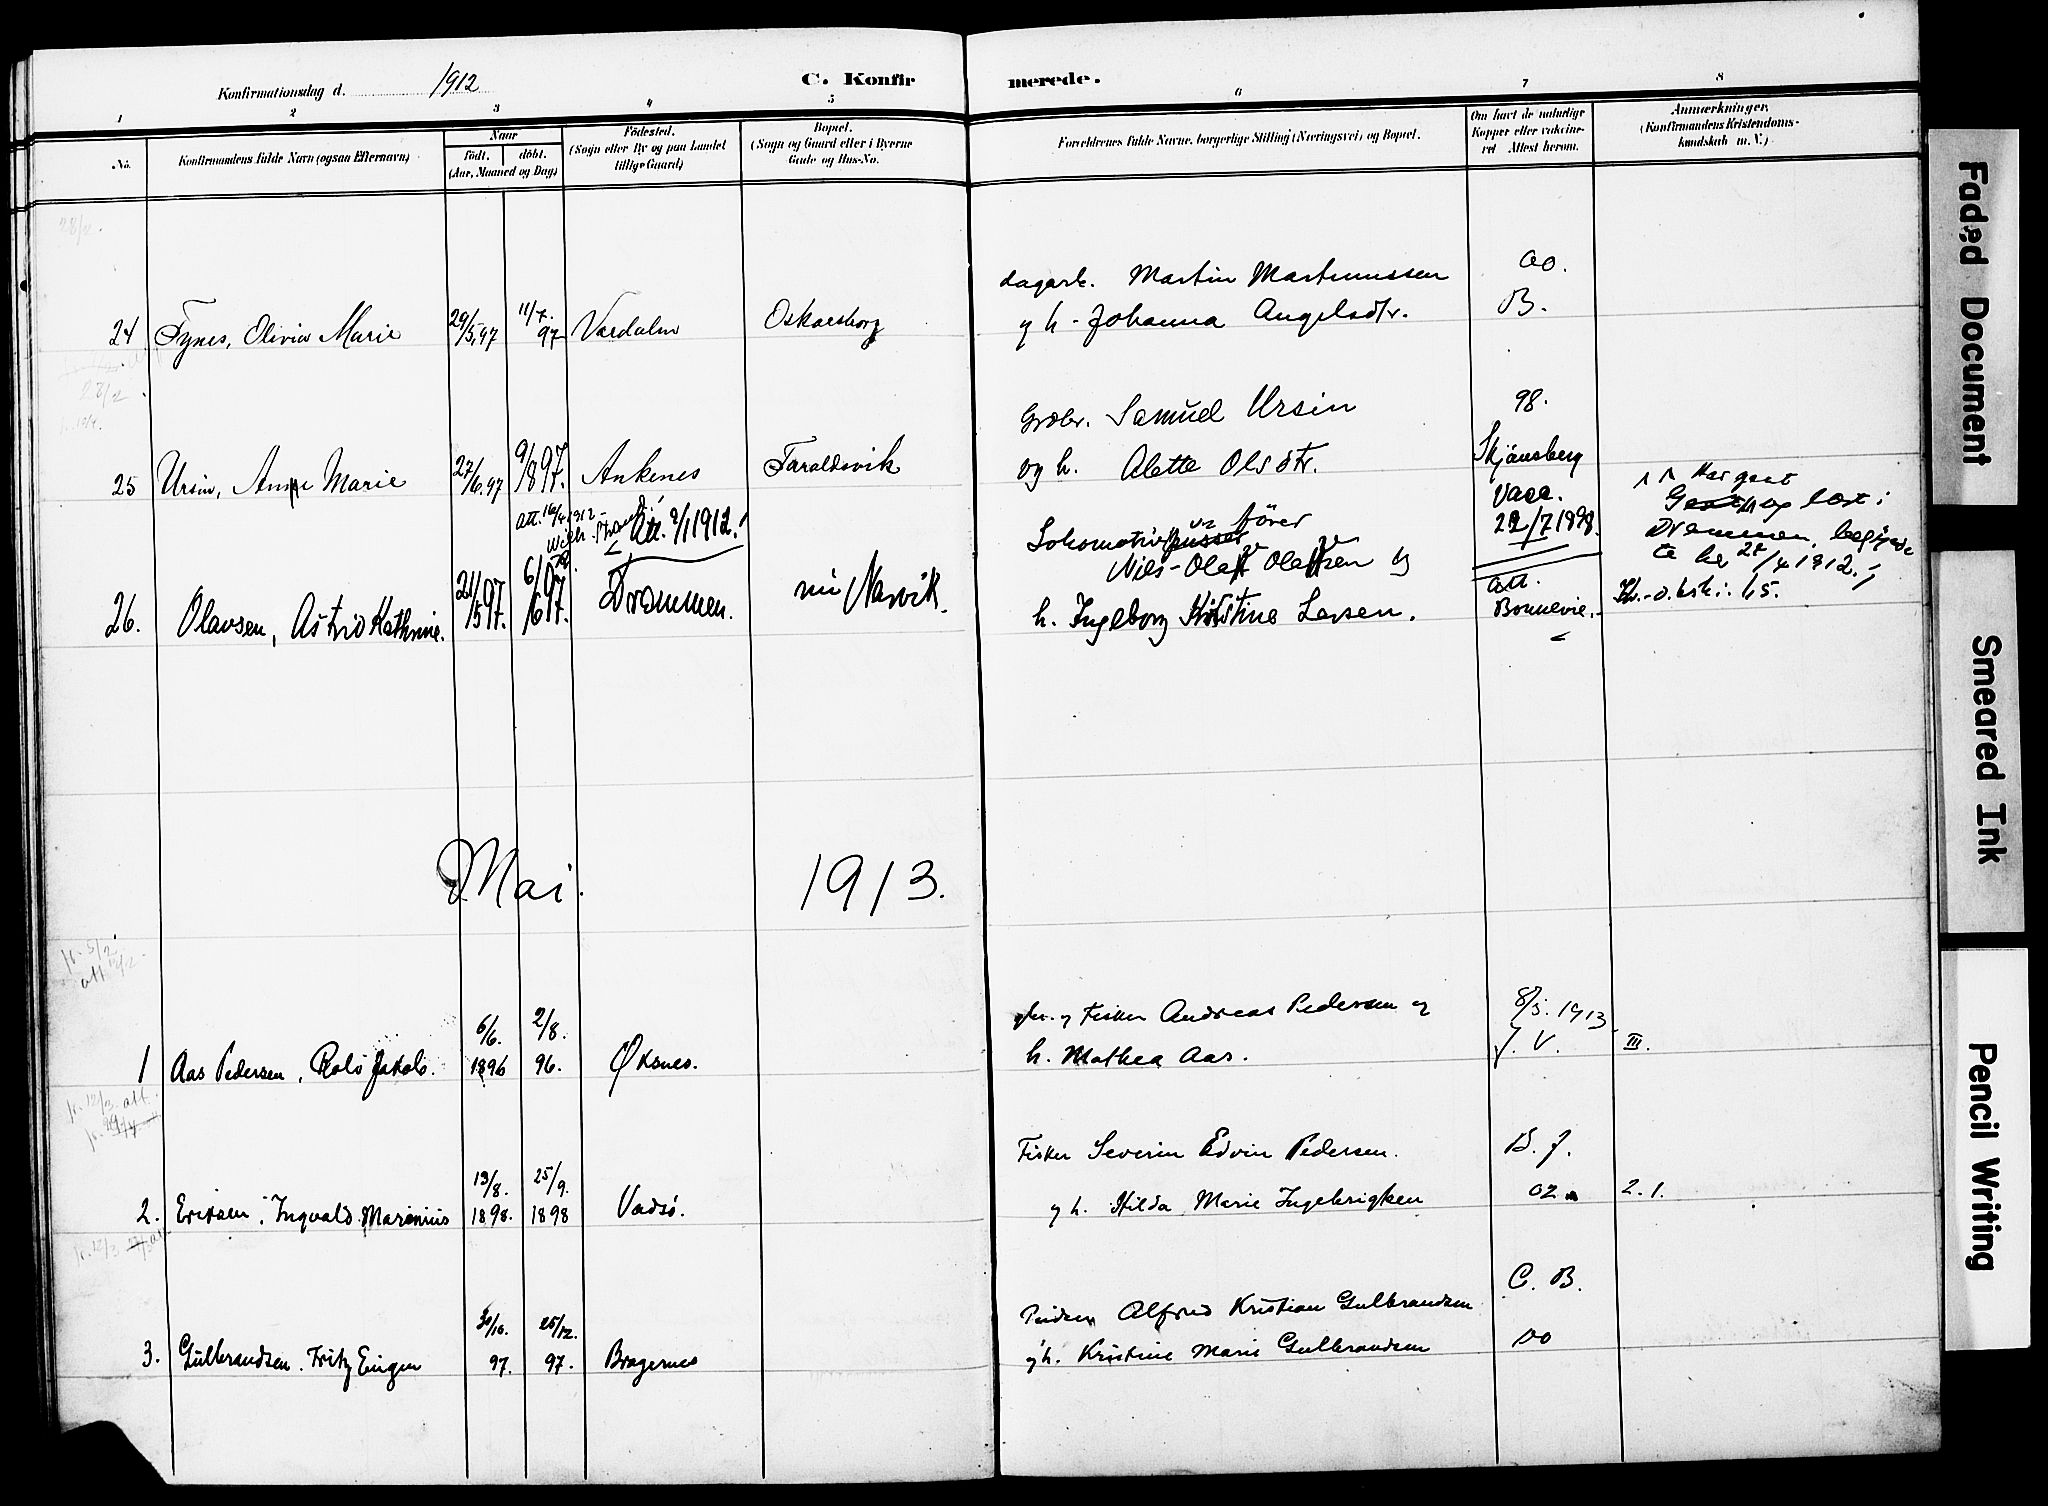 Konfirmationsdag d. 1912
C. Konfirmerede.
1 2 3 4 5 6 7 8
No.
Konfirmandens fulde Navn (ogsaa Efternavn)
Naar
født. døbt.
(Aar, Maaned og Dag)
Fødested.
(Sogn eller By og paa Landet
tillige Gaard)
Bopæl.
(Sogn og Gaard eller i Byerne
Gade og Hus-No.
Forældrenes fulde Navne, borgerlige Stilling (Næringsvei) og Bopæl.
Om havt de naturlige
Kopper eller vaccine-
ret Attest herom.
Anmærkninger.
(Konfirmandens Kristendoms-
kundskab m. V.)
28/2.
dagarb. Martin Martinussen
00.
24 Fynes, Olivia Marie 29/5.97 11/7. 97 Vardalen Oskarsborg
og h. Johanna Angelsdtr.
B.
28/2
Grdbr. Samuel Ursin
98.
25 Ursin, Anne Marie 27/6.97 9/8 97. Ankenes Taraldsvik
og h. Alette Olsdtr.
Skjånsberg
vacc.
22/7 1898.
att. 16/4 1912
Att. 9/1 1912!
Har gaat
og læst i
Drammen, begynd-
te her 22/4 1912.
Lokomotivpusser fører
Nils Olaf Olavsen og
26. Olavsen, Astrid Kathrine. 21/5 97. 6/6 97. Drammen. nu Narvik.
h. Ingeborg Kristine Larsen.
att.
Bonnevie.
Mai. 1913.
5/2
att 12/2
6/6. 2/8.
og Fisker Andreas Pedersen og
8/3. 1913
1 Aas Pedersen, Rolf Jakob. 1896 96. Øksnes.
h. Mathea Aas.
J. V.
III.
12/3. att.
Fisker Severin Edvin Pedersen.
B. J.
13/8. 25/9.
2. Eriksen, Ingvald Marinius 1898. 1898 Vadsø.
og h. Hilda Marie Ingebrigtsen
02
2. 1.
12/3
C. B.
30/10. 25/12.
Alfred Kristian Gulbrandsen
3. Gulbrandsen. Fritz Eugen 97. 97. Bragernes
og h. Kristine Marie Gulbrandsen
00
Faded Document
Smeared Ink
Pencil Writing